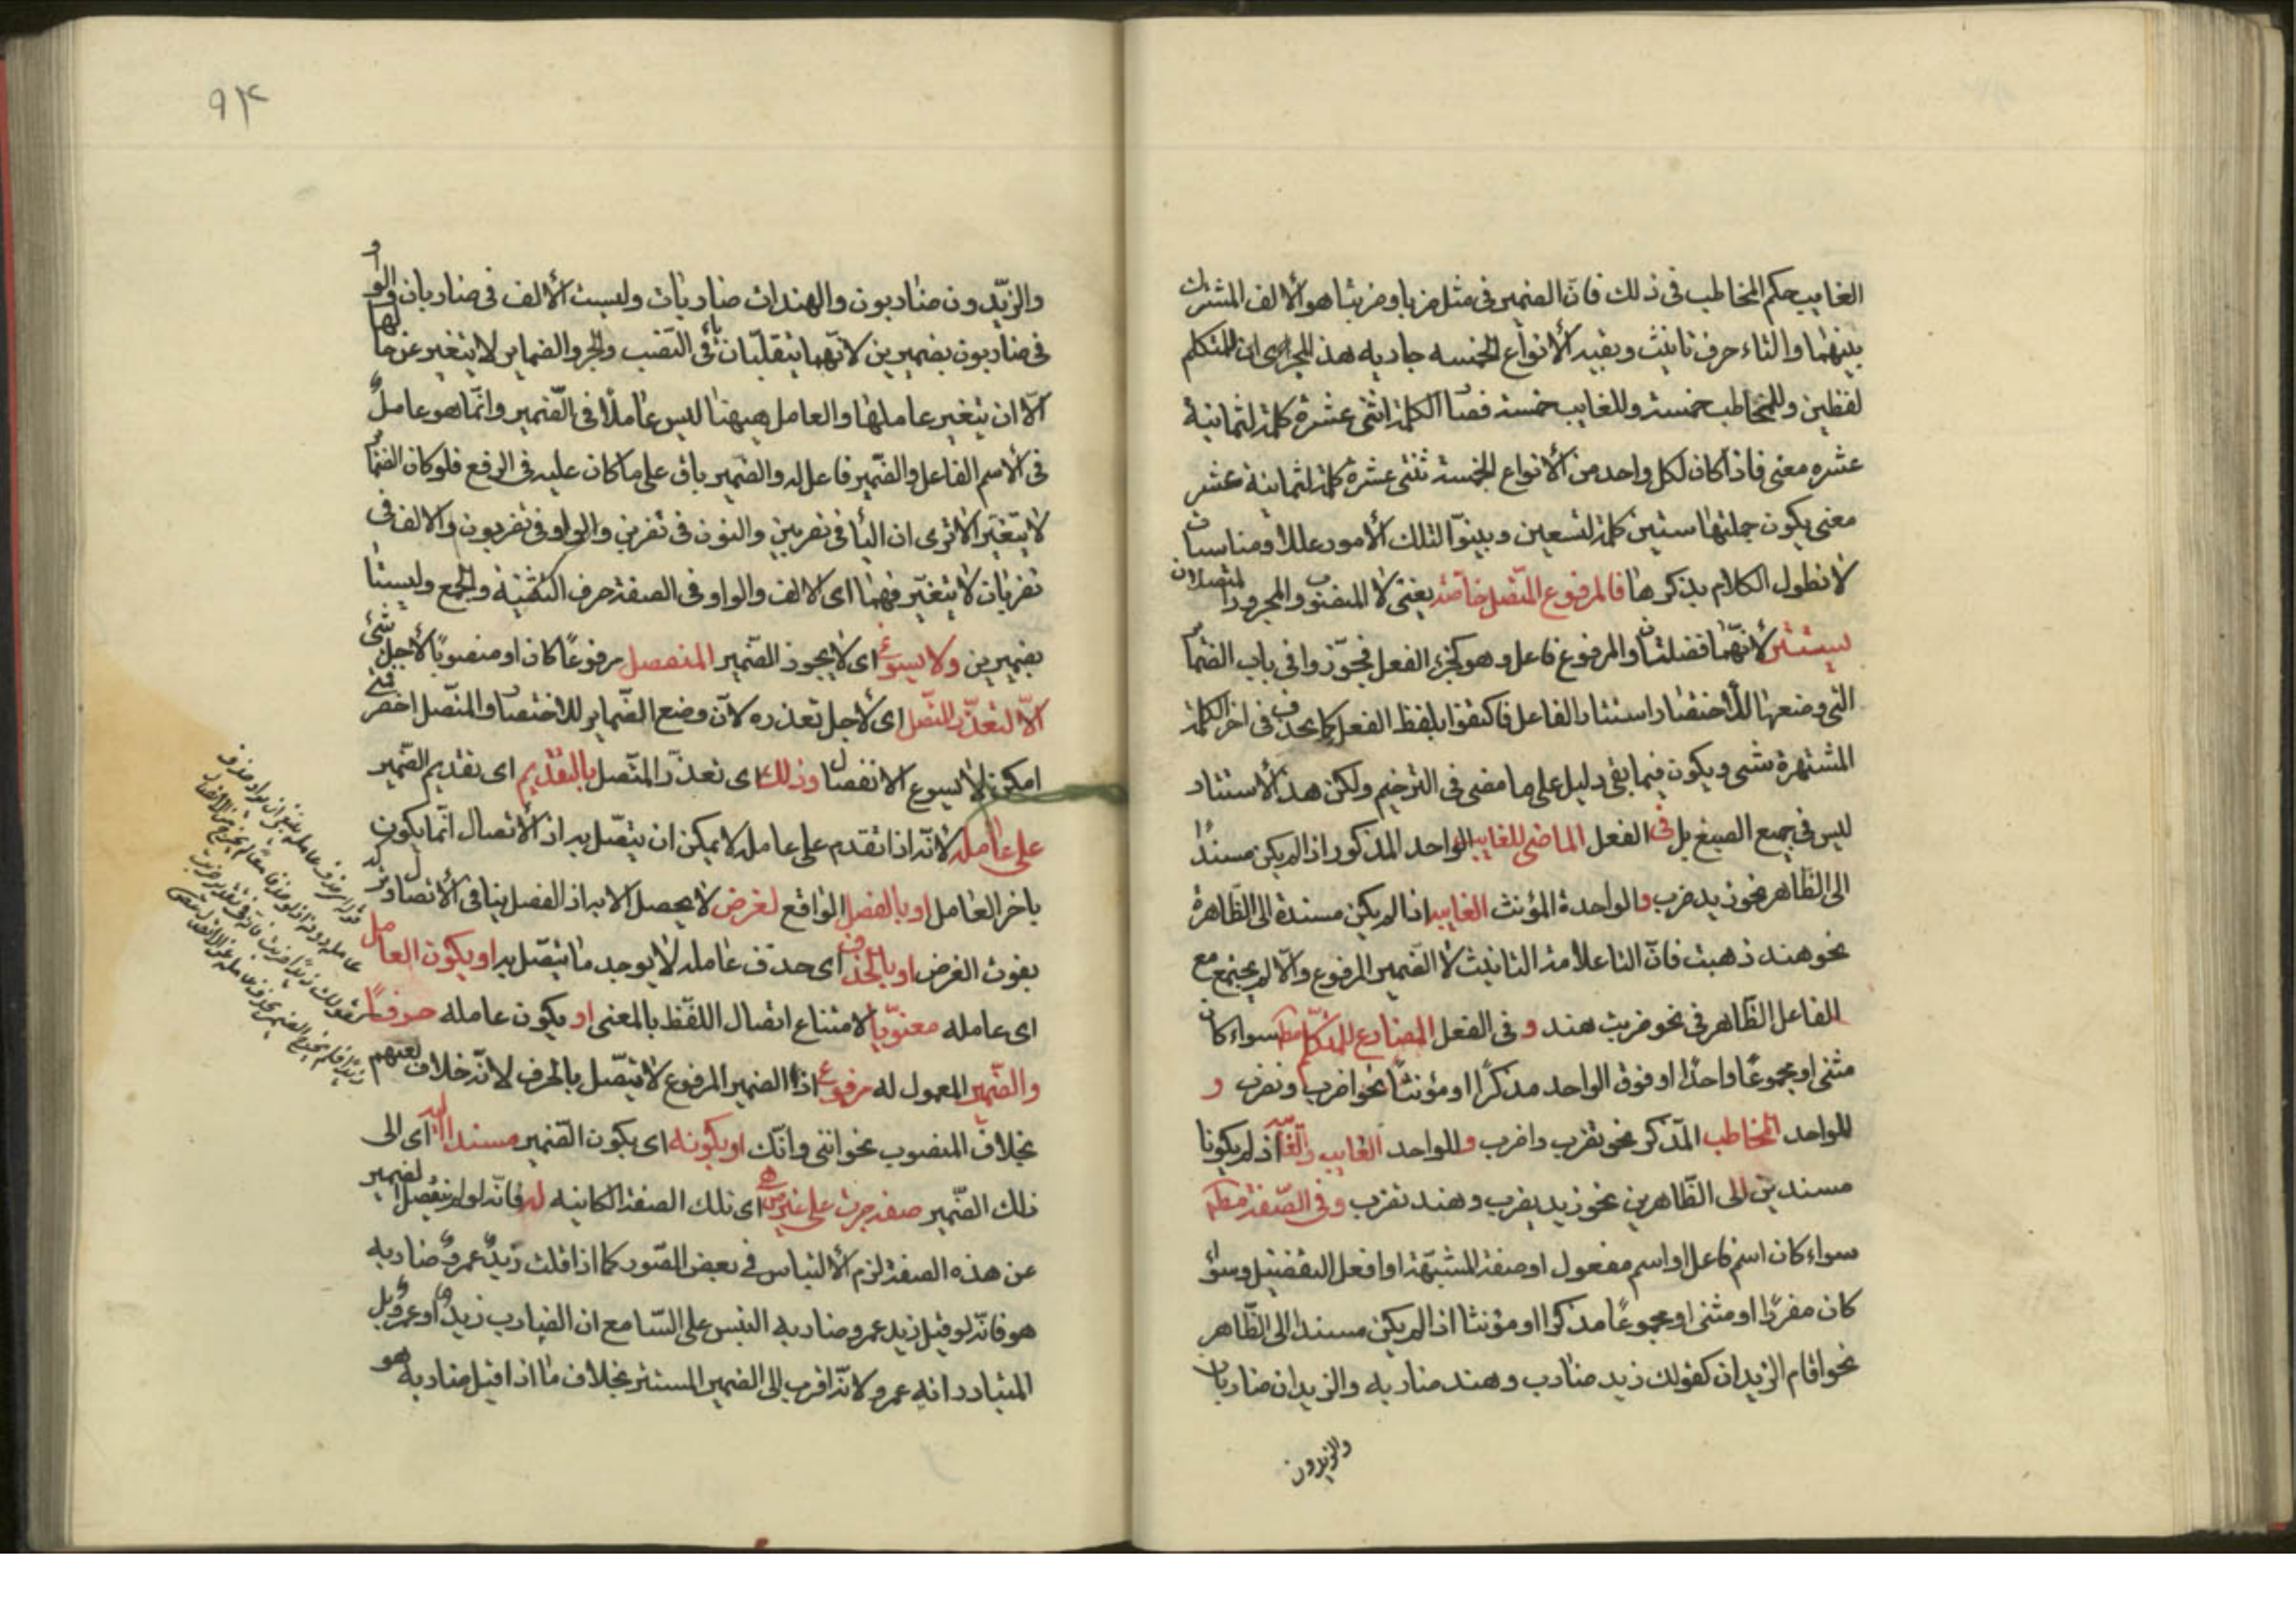 الغايب حكم المخاطب فى ذلك فان الضمير فى مثل ضربا وضربتا هو الألف المشترك
بينهما والتاء حرف تانيث وبقيه الأنواع الخمسه جاريه هذا المجرى اى للمتكلم
لفظين وللمخاطب خمسة وللغايب خمسة فصار الكلمة اثنتى عشرة كلمة لثمانية
عشره معنى فاذا كان لكل واحد من الأنواع الخمسة ثنتى عشرة كلمة لثمانية عشر
معنى يكون جملتها ستين كلمة لتسعين وبينوا لتلك الأمور عللا ومناسبات
لا نطول الكلام بذكرها فالمرفوع المتصل خاصّة يعنى لا المنصوب والمجرور المتصلان
يستتر لأنهما فضلتان والمرفوع فاعل وهو كجزء الفعل فجوّزوا فى باب الضماير
التى وضعها للأختصار استتار الفاعل فاكتفوا بلفظ الفعل كما يحذف فى اخر الكلمة
المشتهرة شىء ويكون فيما بقى دليل على ما مضى فى الترخيم ولكن هذا الأستتار
ليس فى جميع الصيغ بل فى الفعل الماضى للغايب الواحد المذكور اذا لم يكن مسندًا
الى الظاهر نحو زيد ضرب والواحدة المؤنث الغايبه اذا لم يكن مسندة الى الظاهرة
نحو هند ذهبت فان التا علامة التانيث لا الضمير المرفوع والا لم يجتمع مع
الفاعل الظاهر فى نحو ضربت هند و فى الفعل المضارع للمتكلم مط سواء كان
مثنى او مجموعًا واحدًا او فوق الواحد مذكرًا او مؤنثًا نحو اضرب ونضرب و
للواحد المخاطب المذكر نحو تضرب واضرب وللواحد الغايب والغايبه اذ لم يكونا
مسندين الى الظاهرين نحو زيد يضرب وهند تضرب وفى الصّفة مط
سواء كان اسم فاعل او اسم مفعول او صفة المشبّهة او افعل التفضيل وسواء
كان مفردًا او مثنى او مجموعًا مذكرا او مؤنثا اذا لم يكن مسندا الى الظاهر
نحو اقام الزيدان كقولك زيد ضارب وهند ضاربه والزيدان ضاربان
والزيدون
٩٣
والزيّدون ضاربون والهندات ضاربات وليست الألف فى ضاربان والواو
فى ضاربون بضميرين لأنهما ينقلبان ياء فى النصب والجر والضماير لا يتغير عن حالها
الّا ان يتغير عاملها والعامل هيهنا ليس عاملًا فى الضمير وانّما هو عامل
فى الأسم الفاعل والضمير فاعل له والضمير باق على ما كان عليه فى الرفع فلو كان الضماير
لا يتغير الا ترى ان اليا فى تضربين والنون فى تضربن والواو فى تضربون والالف فى
تضربان لا يتغير فهما اى الالف والواو فى الصفة حرف التثنية والجمع وليستا
بضميرين ولا يسوغ اى لا يجوز الضمير المنفصل مرفوعًا كان او منصوبًا لأجل شئ
الّا لتعذّر المتّصل اى لأجل تعذره لان وضع الضماير للاختصار والمتصل اخصر فمتى
امكن لا يسوغ الانفصال وذلك اى تعذر المتصل بالتقديم اى تقديم الضمير
على عامله لانه اذا تقدم على عامله لا يمكن ان يتصل به اذ الأتصال انّما يكون
باخر العامل او بالفصل الواقع لغرض لا يحصل الا به اذ الفصل ينافى الأتصال وتركه
يفوت الغرض او بالحذف اى حذف عامله لا يوجد ما يتصل به او يكون العامل
اى عامله معنويّا لامتناع اتصال اللفظ بالمعنى او يكون عامله حرفًا
والضّمير المعمول له مرفوع اذ الضمير المرفوع لا يتصل بالحرف لانه خلاف لغتهم
بخلاف المنصوب نحو اننى وانّك او بكونه اى بكون الضمير مسندا اليه اى الى
ذلك الضمير صفة جرت على غير من هى اى تلك الصفة الكاينه له فانه لو لم ينفصل الضمير
عن هذه الصفة لزم الألتباس فى بعض الصور كما اذا قلت زيدٌ عمروٌ ضاربه
هو فانه لو قيل زيد عمرو ضاربه التبس على السّامع ان الضارب زيد او عمرو بل
المتبادر انه عمرو لانه اقرب الى الضمير المستتر بخلاف ما اذا قيل ضاربه هو